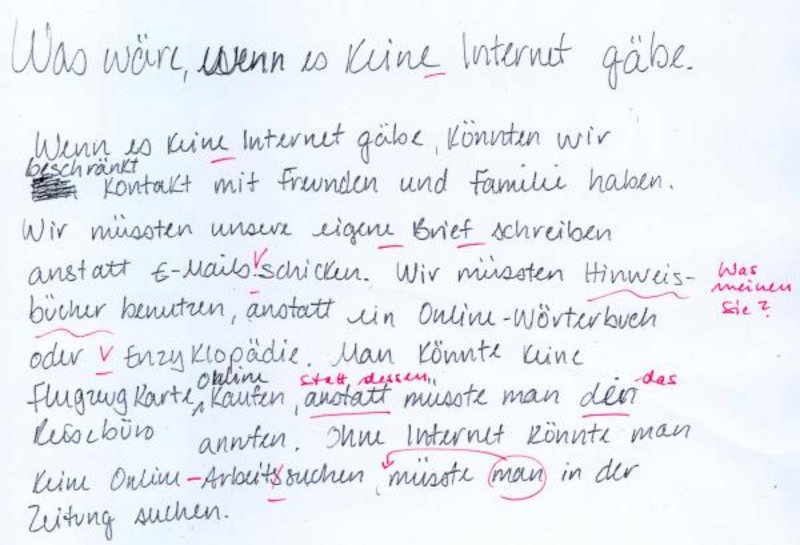 Was wäre, wenn es keine Internet gäbe.
Wenn es keine Internet gäbe, könnten wir
beschränkt
Kontakt mit Freunden und Familie haben.
Wir müssten unsere eigene Brief schreiben
anstatt E-Mails schicken. Wir müssten Hinweis-
Was meinen Sie?
bücher benutzen, anstatt ein Online-Wörterbuch
oder Enzyklopädie. Man könnte keine
online statt dessen das
Flugzeug Karte, kaufen, anstatt müsste man den
Reisebüro annfen. Ohne Internet könnte man
keine Online-Arbeitssuchen, müsste man in der
Zeitung suchen.